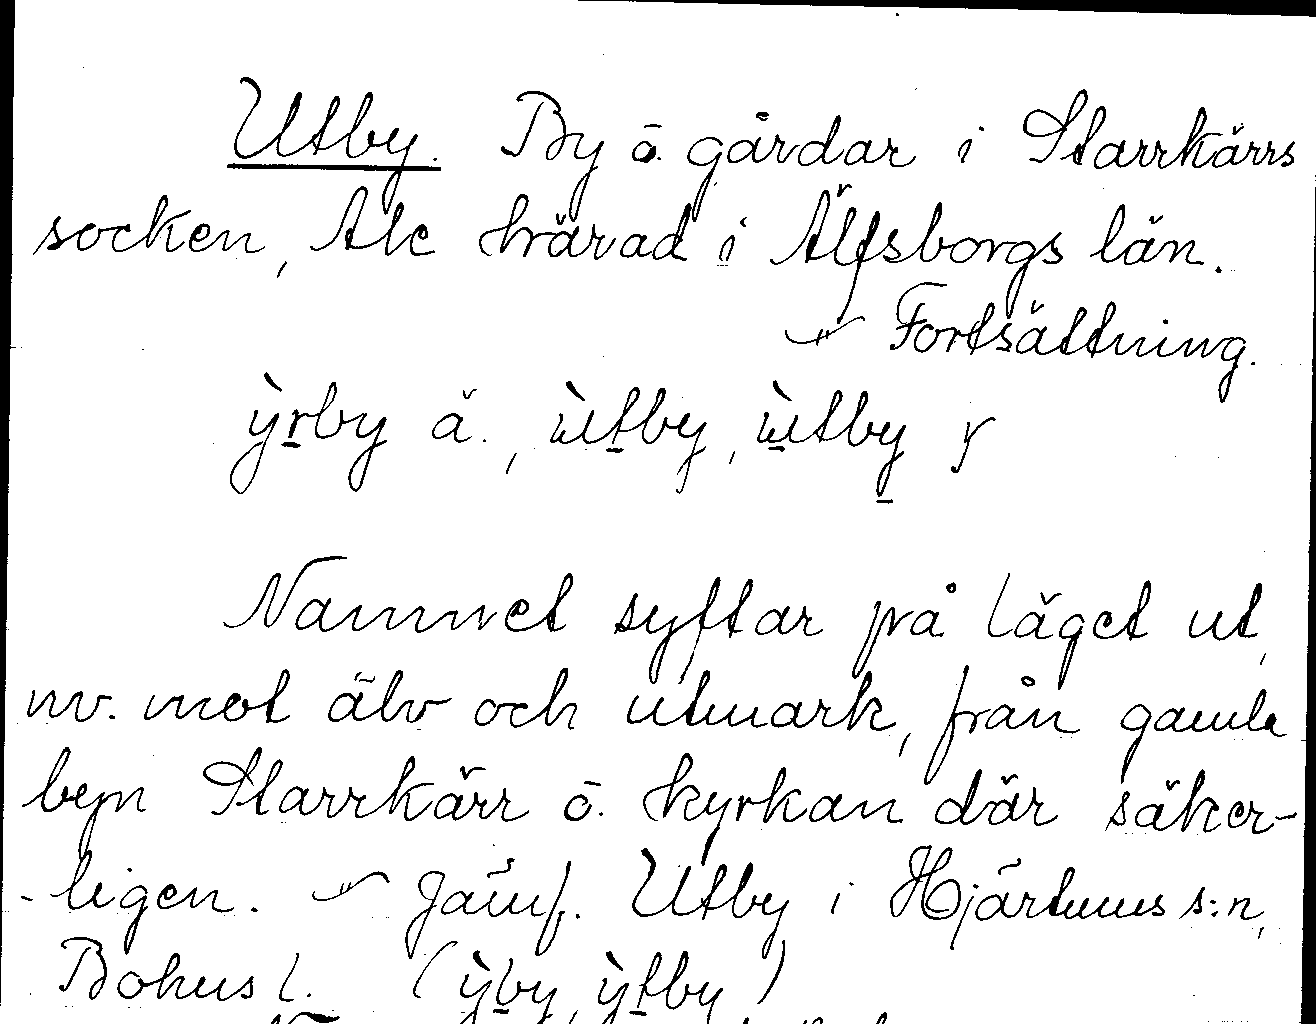 Utby. By ö. gårdar i Starrkärrs
socken, Ale härad i Älfsborgs län.
Fortsättning.
ỳrby ä., ùtby, ùtby
Namnet syftar på läget ut,
nv. mot älv och utmark, från gamla
byn Starrkärr ö. kyrkan där säker-
-ligen. Jämf. Utby i Hjärtums s:n,
Bohusl. (ỳby, ỳtby)